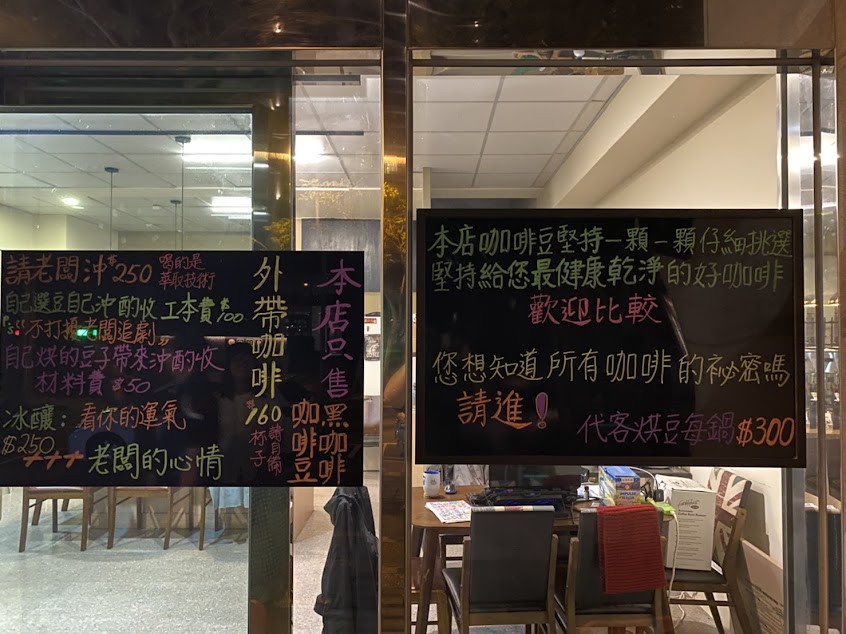 請老闆沖$250
喝的是
萃取技術
自己選豆自己沖 酌收工本費$100
不打擾老闆追劇
自己烘的豆子帶來沖酌收
材料費$50
冰釀：看你的運氣
$250
+++老闆的心情
外帶咖啡
$160
請自備
杯子
本店只售
黑咖啡
咖啡豆
本店咖啡豆堅持一顆一顆仔細挑選
堅持給您最健康乾淨的好咖啡
歡迎比較
您想知道所有咖啡的祕密嗎
請進！
代客烘豆每鍋$300